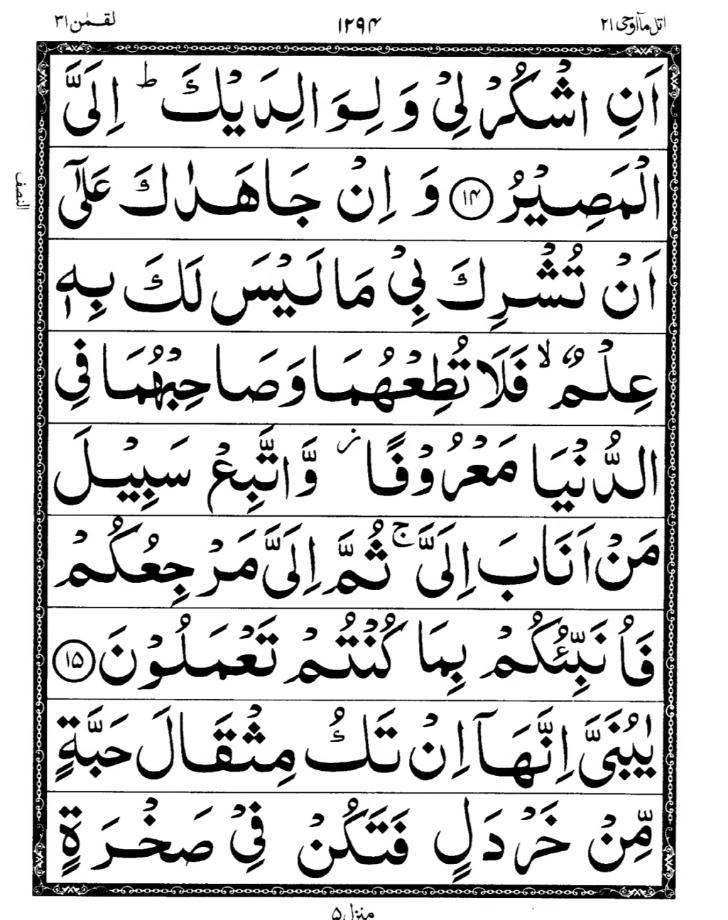 اتل مآ اوحی ۲۱
۱۲۹۴
لقمٰن ۳۱
اَنِ اشْكُرْ لِيْ وَ لِوَالِدَيْكَ ؕ اِلَيَّ
الْمَصِيْرُ ⑭ وَ اِنْ جَاهَدٰكَ عَلٰۤي
النصف
اَنْ تُشْرِكَ بِيْ مَا لَيْسَ لَكَ بِهٖ
عِلْمٌ ۙ فَلَا تُطِعْهُمَا وَصَاحِبْهُمَا فِي
الدُّنْيَا مَعْرُوْفًا ؗ وَّ اتَّبِعْ سَبِيْلَ
مَنْ اَنَابَ اِلَيَّ ۚ ثُمَّ اِلَيَّ مَرْجِعُكُمْ
فَاُنَبِّئُكُمْ بِمَا كُنْتُمْ تَعْمَلُوْنَ ⑮
يٰبُنَيَّ اِنَّهَاۤ اِنْ تَكُ مِثْقَالَ حَبَّةٍ
مِّنْ خَرْدَلٍ فَتَكُنْ فِيْ صَخْرَةٍ
منزل ۵